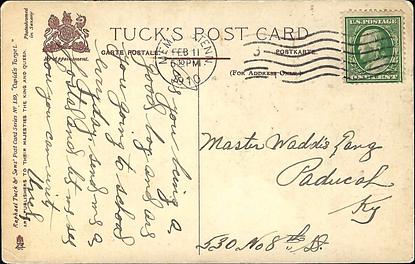 TUCK'S POST CARD
CARTE POSTALE.
POSTKARTE.
(FOR ADDRESS ONLY.)
By Appointment.
Photochromed in Saxony
Raphael Tuck & Sons' Post Card Series No
ART PUBLISHERS TO THEIR MAJESTIES THE KING AND QUEEN.
FEB 11
PM
1910
U.S. POSTAGE
ONE CENT
is your being a
good boy and are
you going to school
every day, send me a
postal and let us see
you can write
Master Wadd's Lang
Paducah
Ky
530 No 8th St